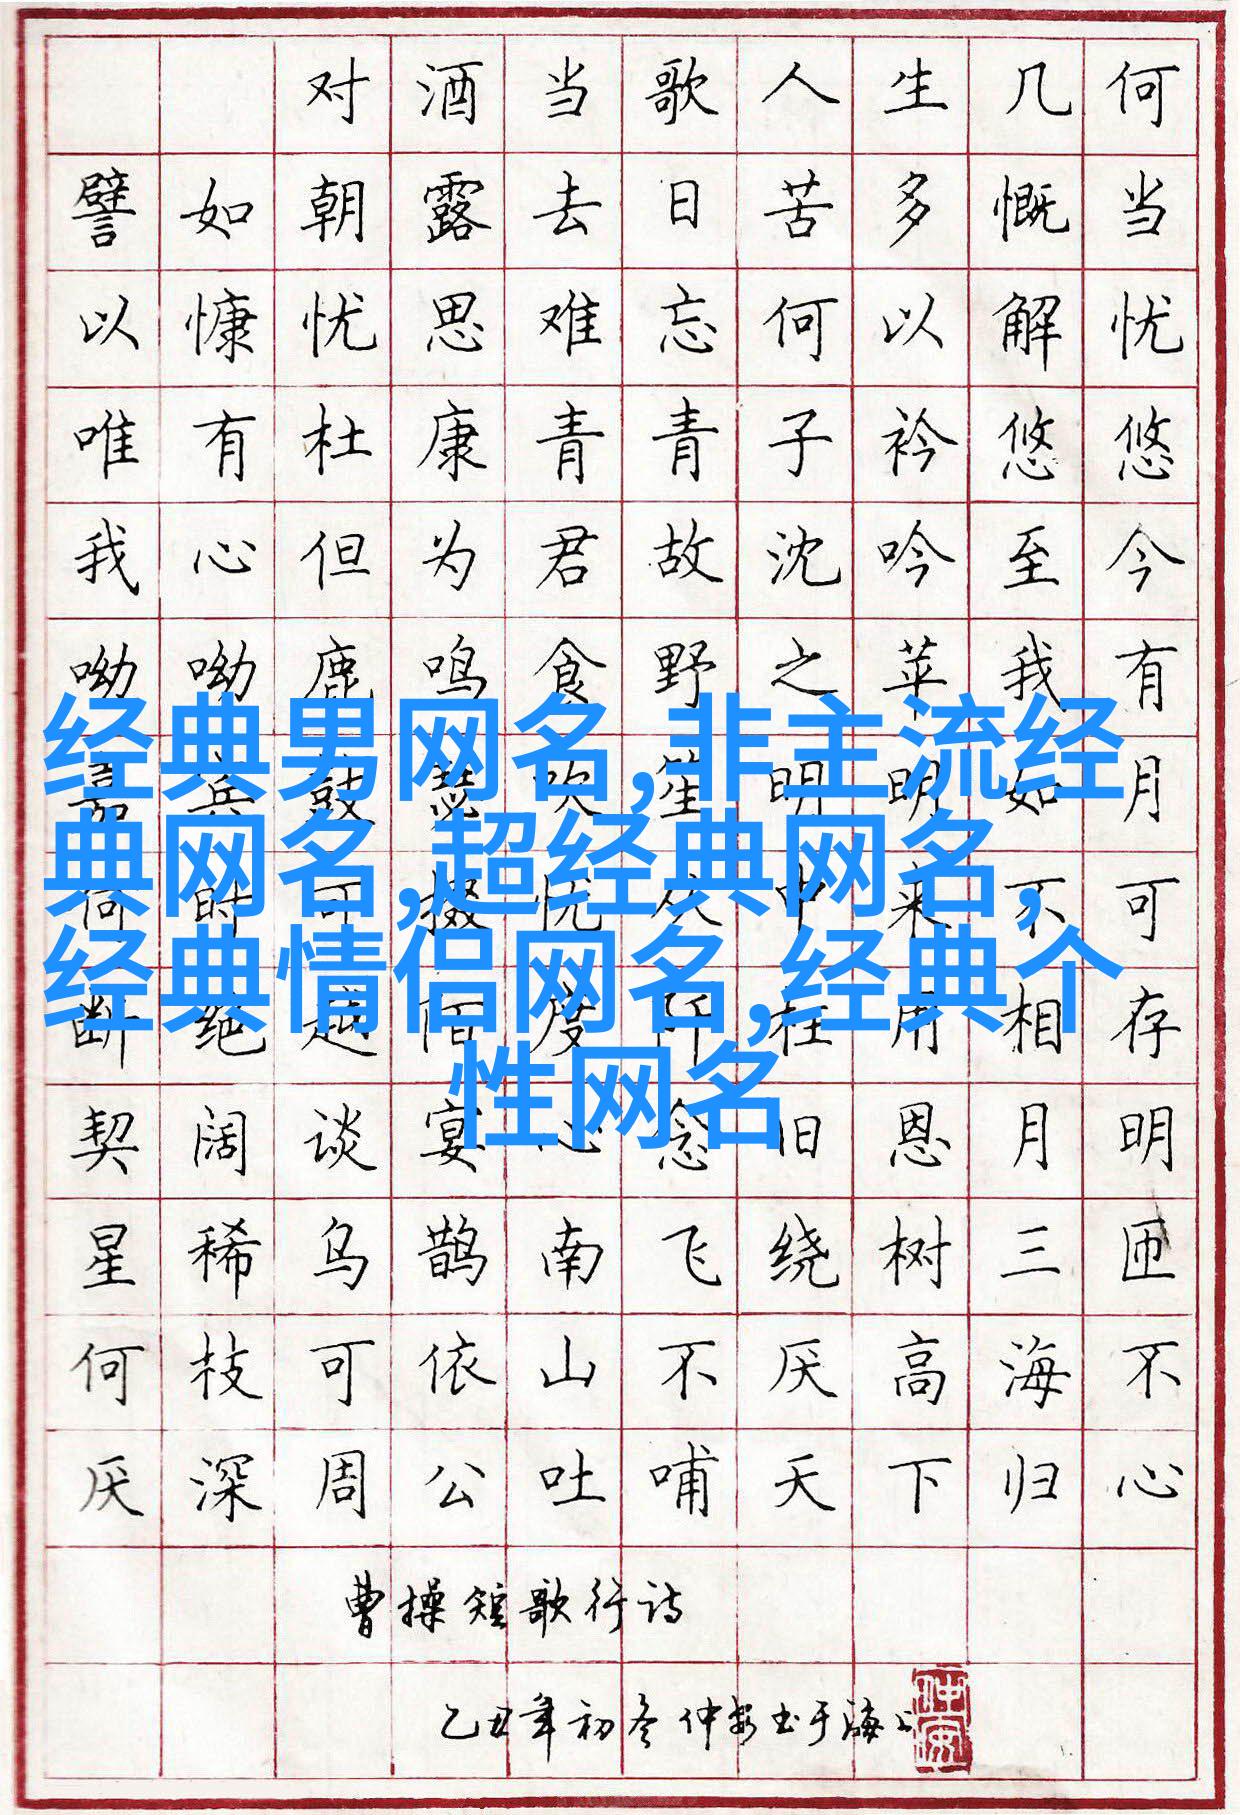 对酒当歌人生几何
譬如朝露去日苦多慨当
以慷忧思难忘何以解忧
唯有杜康青青子衿悠悠
我心但为君故沈吟至今
呦呦鹿鸣食野之苹我有
嘉宾鼓瑟吹笙明明如月
何时可掇忧从中来不可
断绝越陌度阡枉用相存
契阔谈宴心念旧恩月明
星稀乌鹊南飞绕树三匝
何枝可依山不厌高海不
厌深周公吐哺天下归心
曹操短歌行诗
乙丑年初冬仲安书于海上
仲安
经典男网名,非主流经
典网名,超经典网名,
经典情侣网名,经典个
性网名